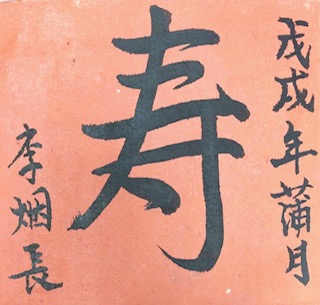 戊戌年蒲月
寿
李烱長